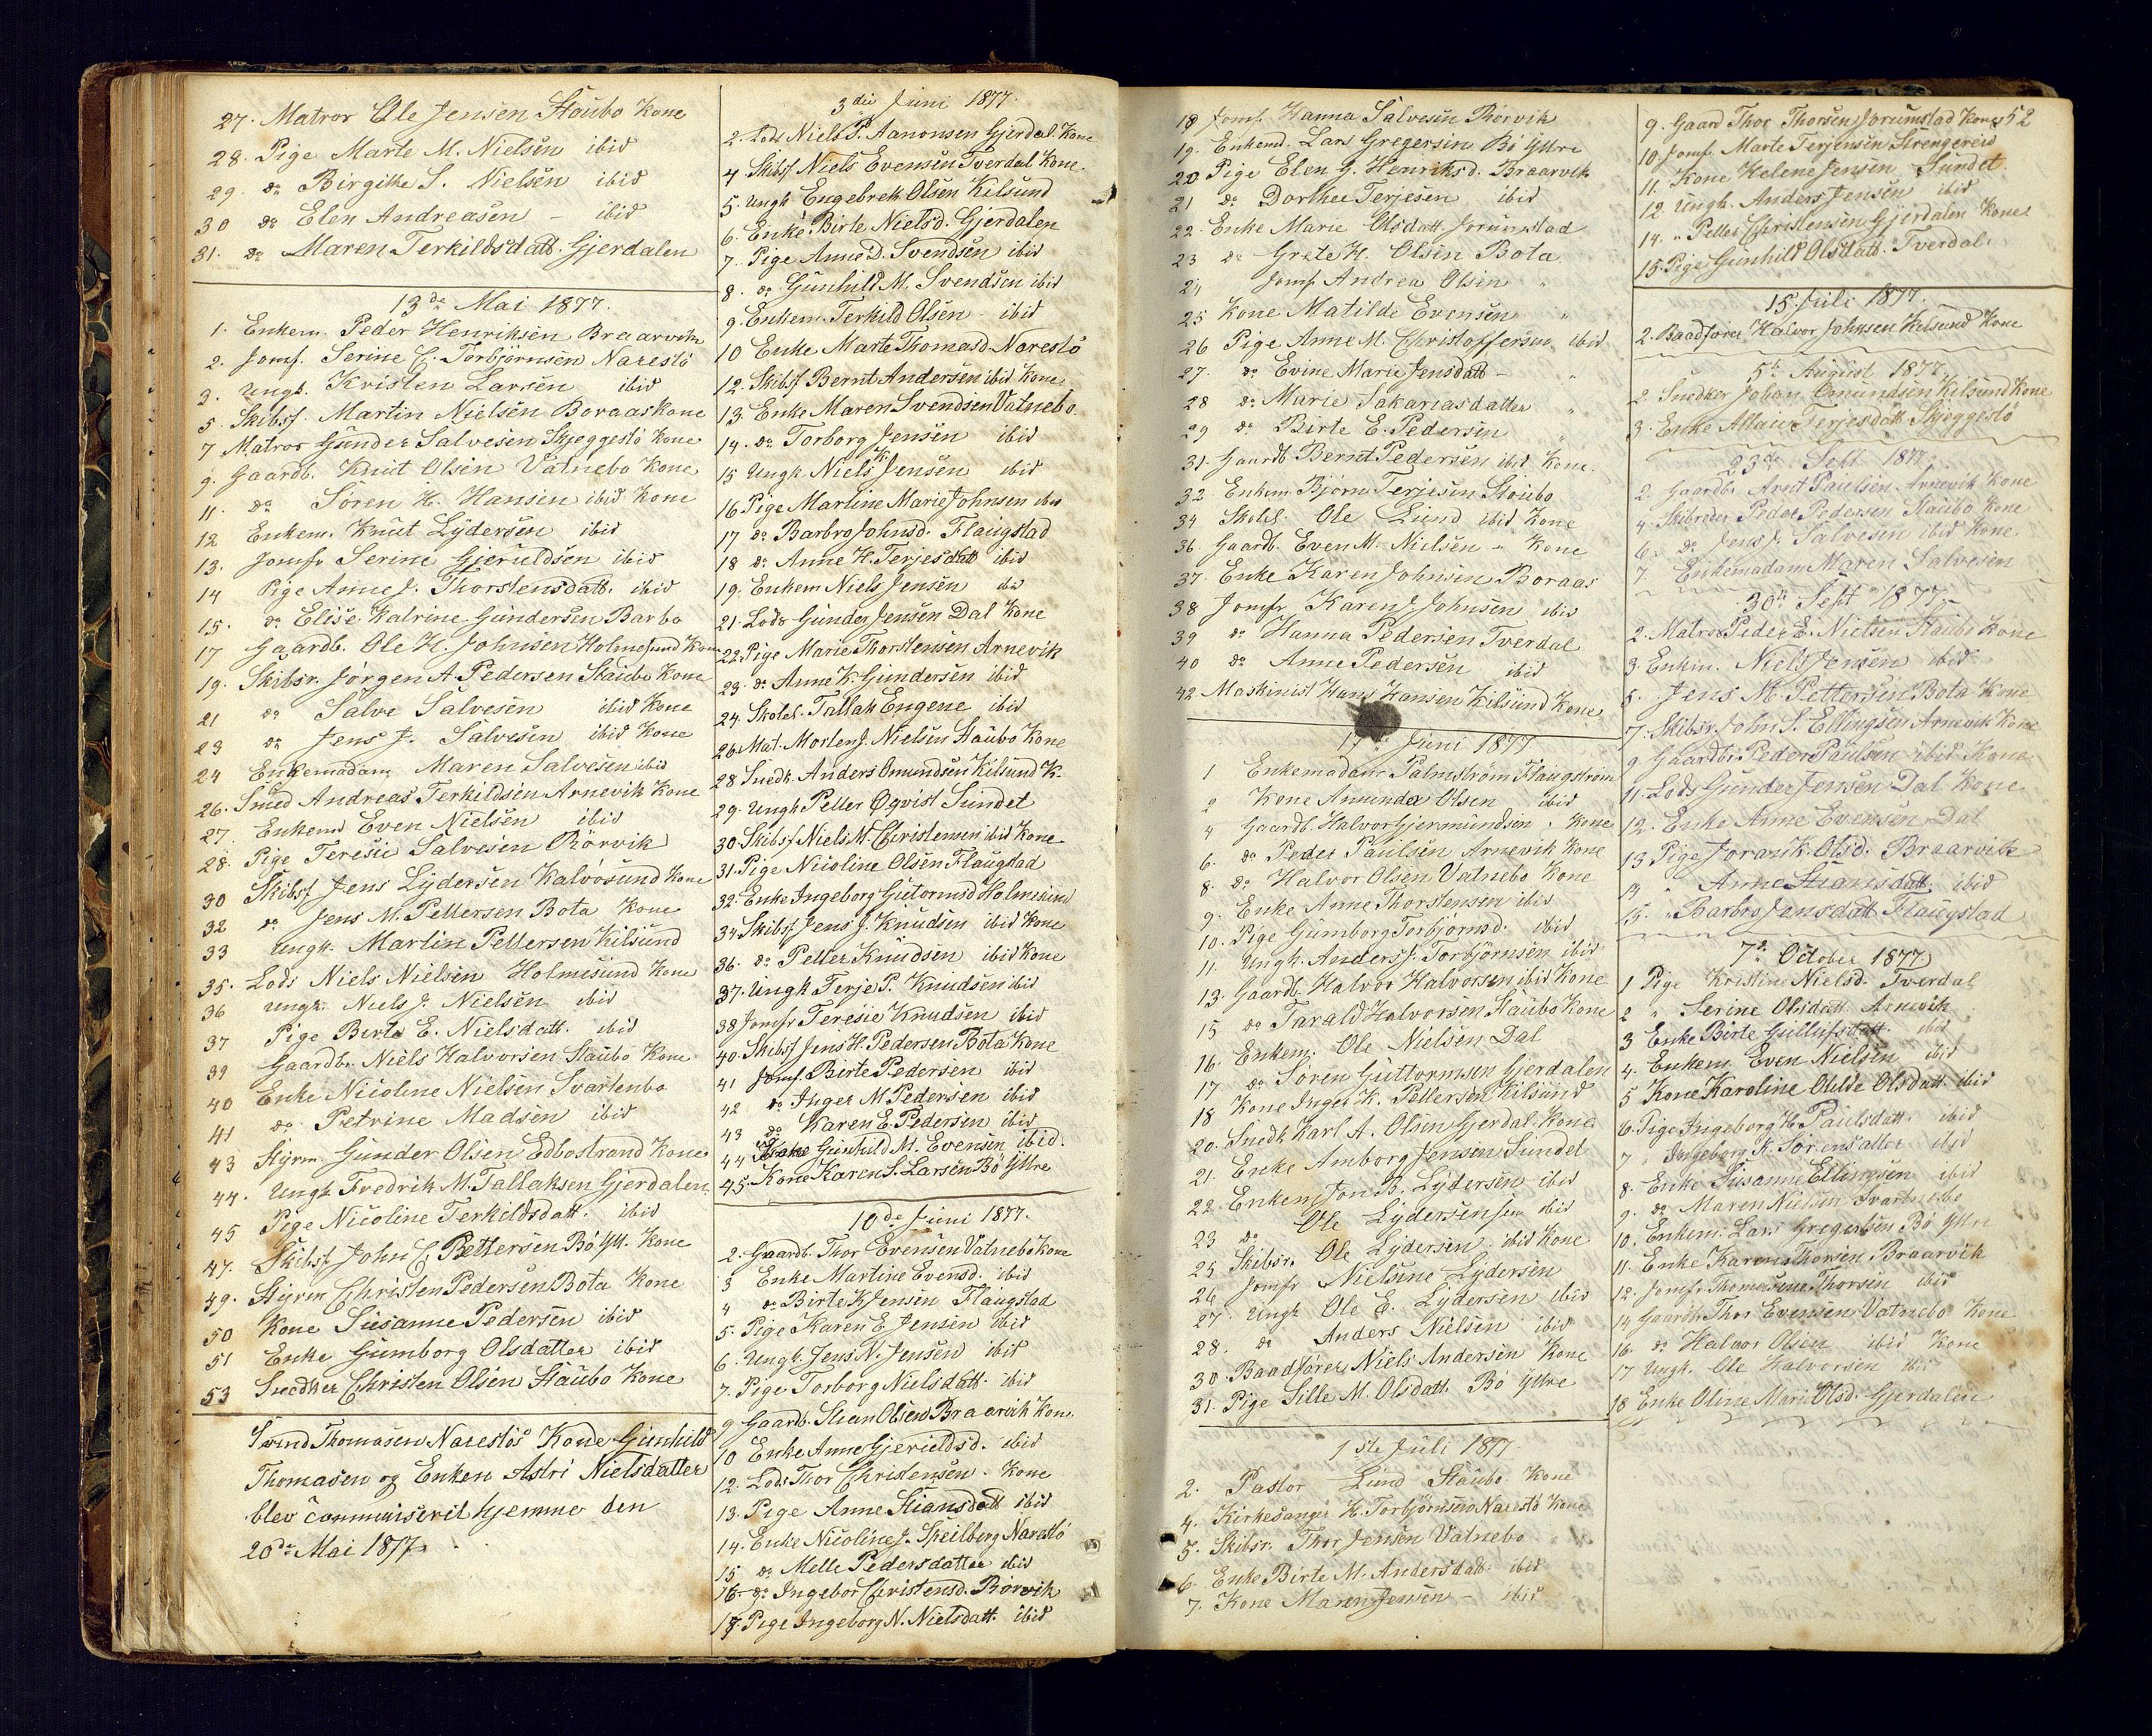 27. Matros Ole Jensen Staubo Kone
28. Pige Marte M. Nielsen ibid
29. do Birgithe S. Nielsen ibid
30 do Elen Andreasen - ibid
31. do Maren Terkildsdatt. Gjerdalen
13de Mai 1877.
1. Enkem. Peder Henriksen Braarvik
2. Jomf. Serine C. Torbjörnsen Narestö
3. Ungk. Kristen Larsen ibid
5. Skibsf. Martin Nielsen Boraas Kone
7 Matros Gunder Salvesen Skjeggestö Kone
9. Gaardb. Knut Olsen Vatnebo Kone
11. do Sören H. Hansen ibid Kone
12 Enkem. Knut Lydersen ibid
13. Jomfr Serine Gjeruldsen ibid
14 Pige Anne J. Thorstensdatt. ibid
15. do Elise Katrine Gundersen Barbo
17 Gaardb. Ole H. Johnsen Holmesund Kone
19. Skibsr. Jörgen A. Pedersen Staubo Kone
21 do Salve Salvesen ibid Kone
23 do Jens J. Salvesen ibid Kone
24 Enkemadam Maren Salvesen ibid
26. Smed Andreas Terkildsen Arnevik Kone
27. Enkem Even Nielsen ibid
28. Pige Teresie Salvesen Rörvik
30 Skibsf Jens Lydersen Kalvösund Kone
32 do Jens M. Pettersen Bota Kone
33 Ungk. Martin Pettersen Kilsund
35. Lods Niels Nielsen Holmesund Kone
36 Ungk. Niels J. Nielsen ibid
37 Pige Birte E. Nielsdatt. ibid
39 Gaardbr. Niels Halvorsen Staubo Kone
40 Enke Nicoline Nielsen Svartenbo
41 do Petrine Madsen ibid
43 Styrm. Gunder Olsen Edbostrand Kone
44. Ungk Fredrik M. Tallaksen Gjerdalen
45 Pige Nicoline Terkildsdatt. ibid
47. Skibsf John C Pettersen Bö Ytt. Kone
49. Styrm Christen Pedersen Bota Kone
50 Kone Susanne Pedersen ibid
51 Enke Gumborg Olsdatter ibid
53 Snedker Christen Olsen Staubo Kone
Svend Thomasen Narestös Kone Gunhild
Thomasen og Enken Astri Nielsdatter
blev communiseret hjemme den
20de Mai 1877.
3die Juni 1877.
2. Lods Niels P. Aanonsen Gjerdal. Kone
4. Skibsf Niels Evensen Tverdal Kone
5. Ungk Engebrekt Olsen Kilsund
6. Enke Birte Nielsd. Gjerdalen
7. Pige Anne D. Svendsen ibid
8. do Gunhild M. Svendsen ibid
9. Enkem Terkild Olsen ibid
10 Enke Marte Thomasd. Narestö
12. Skibsf Bernt Andersen ibid Kone
13 Enke Maren Svendsen Vatnebo.
14. do Torborg Jensen ibid
15 Ungk. Niels K. Jensen ibid
16 Pige Martine Marie Johnsen ibid
17 do Barbro Johnsd. Flaugstad
18 do Anne H. Terjesdatt ibid
19. Enkem Niels Jensen ibid
21. Lods Gunder Jensen Dal Kone
22. Pige Marie Thorstensen Arnevik
23. do Anne K. Gundersen ibid
24. Skolel. Tallak Engene ibid
26. Mat. Morten J. Nielsen Staubo Kone
28 Snedk. Anders Omundsen Kilsund K.
29. Ungk Petter Oqvist Sundet
30. Skibsf Niels M. Christensen ibid Kone
31. Pige Nicoline Olsen Flaugstad
32. Enke Ingeborg Gutormsd Holmesund
34 Skibsf Jens J. Knudsen ibid Kone
36. do Petter Knudsen ibid Kone
37. Ungk Terje P. Knudsen ibid
38 Jomfr Teresie Knudsen ibid
40. Skibsf Jens H. Pedersen Bota Kone
41 Jomf. Birte Pedersen ibid
42 do Inger M Pedersen ibid
43 do Karen E. Pedersen ibid
44 Gunhild M. Evensen ibid.
45. Kone Karen S. Larsen Bö Yttre
10de Juni 1877.
2. Gaardb. Thor Evensen Vatnebo Kone
3 Enke Martine Evensd. ibid
4 do Birte K Jensen Flaugstad
5. Pige Karen E Jensen ibid
6. Ungk. Jens N. Jensen ibid
7. Pige Torborg Nielsdatt. ibid
9 Gaardb. Stian Olsen Braarvik Kone
10 Enke Anne Gjerieldsd. ibid
12. Lods Thor Christensen. Kone
13. Pige Anne Stiansdatt ibid
14. Enke Nicoline J. Speilberg Narestö
15 do Melle Pedersdatter ibid
16 do Ingebor Christensd. Rörvik
17 Pige Ingeborg N. Nielsdatt. ibid
18 Jomf. Hanna Salvesen Rörvik
19. Enkemd. Lars Gregersen Bö Yttre
20 Pige Elen G. Henriksd. Braarvik
21 do Dorthee Terjesen ibid
22. Enke Marie Olsdatt. Jorumstad
23 do Grete H. Olsen Bota
24 Jomf Andrea Olsen "
25 Kone Matilde Evensen "
26 Pige Anne M. Christoffersen ibid
27. do Evine Marie Jensdatt - "
28 do Marie Sakariasdatter "
29 do Birte E. Pedersen "
31. Gaardb. Bernt Pedersen ibid Kone
32 Enkem Björn Terjesen Staubo
34 Skolel. Ole Lund ibid Kone
36. Gaardb. Even M. Nielsen " Kone
37. Enke Karen Johnsen Boraas
38 Jomfr Karen J. Johnsen ibid
39 do Hanna Pedersen Tverdal
40 do Anne Pedersen ibid
42 Maskinist Hans Hansen Kilsund Kone
17de Juni 1877
1 Enkemadam Palmström Flaugstad
2 Kone Amunda Olsen ibid
4 Gaardb. Halvor Gjermundsen " Kone
6. do Peder Paulsen Arnevik Kone
8. do Halvor Olsen Vatnebo Kone
9. Enke Anne Thorstensen ibid
10. Pige Gumborg Torbjörnsd. ibid
11. Ungk. Anders J. Torbjörnsen ibid
13. Gaardb Halvor Halvorsen ibid Kone
15 do Tarald Halvorsen Staubo Kone
16. Enkem. Ole Nielsen Dal
17 do Sören Guttormsen Gjerdalen
18 Kone Inger K. Pettersen Kilsund
20. Snedk Karl A. Olsen Gjerdal. Kone
21. Enke Amborg Jensen Sundet
22. Enkem Jon B. Lydersen ibid
23 do Ole Lydersen sen ibid
25 Skibsr. Ole Lydersen. ibid Kone
26 Jomfr Nielsine Lydersen
27. Ungk Ole E. Lydersen ibid
28. do Anders Nielsen ibid
30. Baadförer Niels Andersen Kone
31. Pige Sille M. Olsdatt. Bö Yttre
1ste Juli 1877.
2. Pastor Lund Staubo Kone
4. Kirkesanger H. Torbjörnsen Narestö Kone
5. Skibsr. Thor Jensen Vatnebo
6. Enke Birte M. Andersdatt. ibid
7. Kone Maren Jensen - ibid
9. Gaard Thor Thorsen Jorumstad Kone 52
10. Jomf. Marte Terjensen Strengereid
11. Kone Helene Jensen Sundet.
12 Ungk. Anders Jensen ibid
14. " Petter Christensen Gjerdalen Kone
15. Pige Gunhild Olsdatt. Tverdal.
15 Juli 1877.
2. Baadförer Halvor Johnsen Kilsund Kone
5te August 1877.
2. Snedker Johan Omundsen Kilsund Kone
3. Enke Terjesdatt. Skjeggestö
23de Sept. 1877.
2. Gaardbr. Arnt Paulsen Arnevik Kone
4. Skibreder Peder Pedersen Staubo Kone
6. do Jens J. Salvesen ibid Kone
7 Enkemadam Maren Salvesen
30te Sept 1877.
2. Matros Peder E. Nielsen Staubo Kone
3. Enkm. Niels Jensen ibid
5. Jens M. Pettersen Bota Kone
7. Skibsr. John S. Ellingsen Arnevik Kone
9. Gaardbr. Peder Paulsen ibid Kone
11. Lods Gunder Jensen Dal Kone
12. Enke Anne Evensen Dal
13 Pige Joran K. Olsd. Braarvik
14 " Anne Stiansdatt. ibid
15. " Barbro Jensdatt Flaugstad
7de October 1877
1 Pige Kristine Nielsd. Tverdal
2 " Serine Olsdatt. Arnevik
3 Enke Birte Gullufsdatt. ibid
4. Enkem Even Nielsen ibid
5 Kone Karoline Otilde Olsdatt. ibid
6. Pige Ingeborg K. Paulsdatt. ibid
7 " Ingeborg K. Sörensdatter ibid
8. Enke Susanne Ellingsen ibid
9. do Maren Nielsen Svartenbo
10. Enkem. Lars Gregersen Bö Yttre
11. Enke Karen Thorsen Braarvik
12. Jomfr Thomasine Thorsen ibid
14 Gaardb Thor Evensen Vatnebo Kone
16. do Halvor Olsen ibid Kone
17 Ungk. Ole Halvorsen ibid
18 Enke Oline Marie Olsd. Gjerdalen